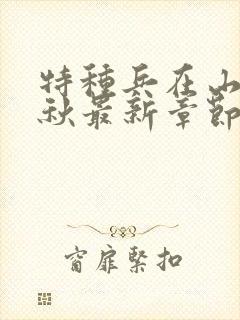 特種兵在山
秋最新章節
窗扉緊扣